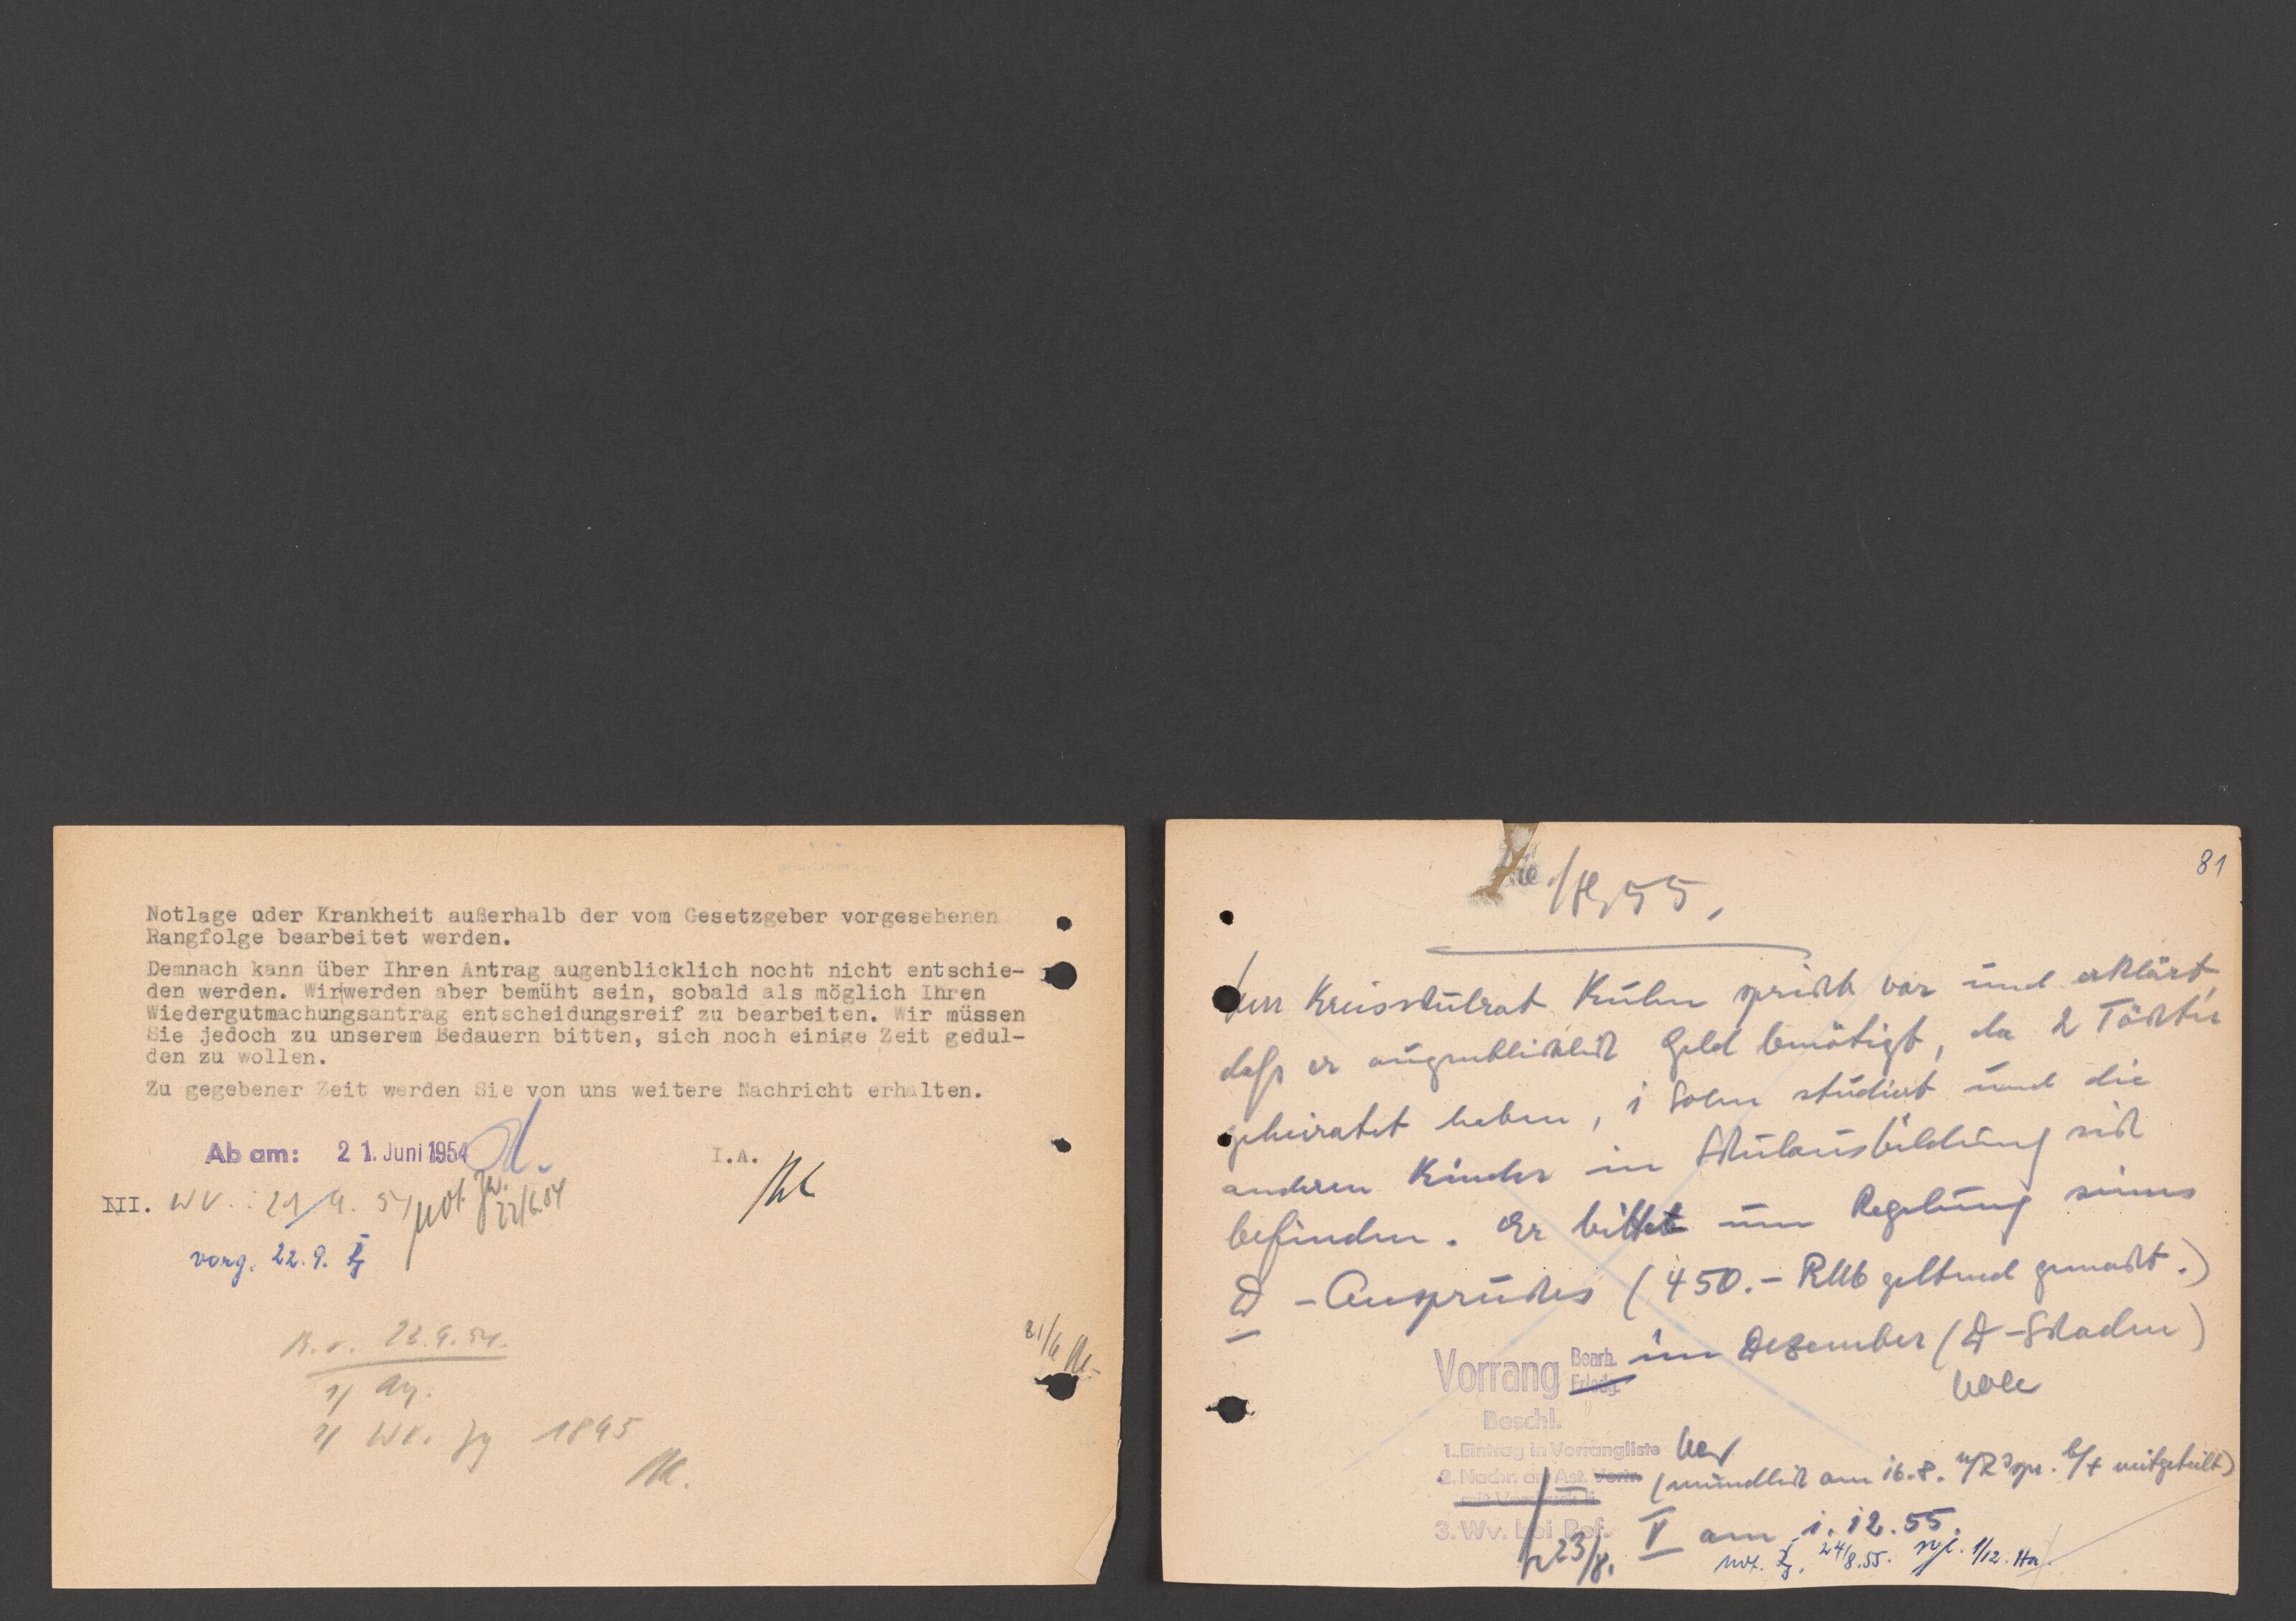 Notlage oder Krankheit außerhalb der vom Gesetzgeber vorgesehenen
Rangfolge bearbeitet werden.
Demnach kann über Ihren Antrag augenblicklich nocht nicht entschie-
den werden. Wir werden aber bemüht sein, sobald als möglich Ihren
Wiedergutmachungsantrag entscheidungsreif zu bearbeiten. Wir müssen
Sie jedoch zu unserem Bedauern bitten, sich noch einige Zeit gedul-
den zu wollen.
Zu gegebener Zeit werden Sie von uns weitere Nachricht erhalten.
Ab am: 21. Juni 1954
I.A.
III. WV.: 21/9. 54 not. 22/6.54
vorg. 22.9.
23.9.54.
1/
2/ WV. Jg 1895
21/6
81
55.
Herr Kreisschulrat Kuhn spricht vor und erklärt,
daß er augenblicklich Geld benötigt, da 2 Töchter
geheiratet haben, 1 Sohn studiert und die
anderen Kinder in Schulausbildung sich
befinden. Er bittet um Regelung seines
D - Anspruches (450.- RM geltend gemacht.)
im Dezember (D-Schaden)
Vorrang Bearb.
Erledg.
Beschl.
1. Eintrag in Vorrangliste
2. Nachr. an Ast. Vertr.
(mündlich am 16.8. mitgeteilt)
3. Wv. bei Ref.
V am 1.12.55.
23/8.
not. 24/8.55. 1/12. Ha.